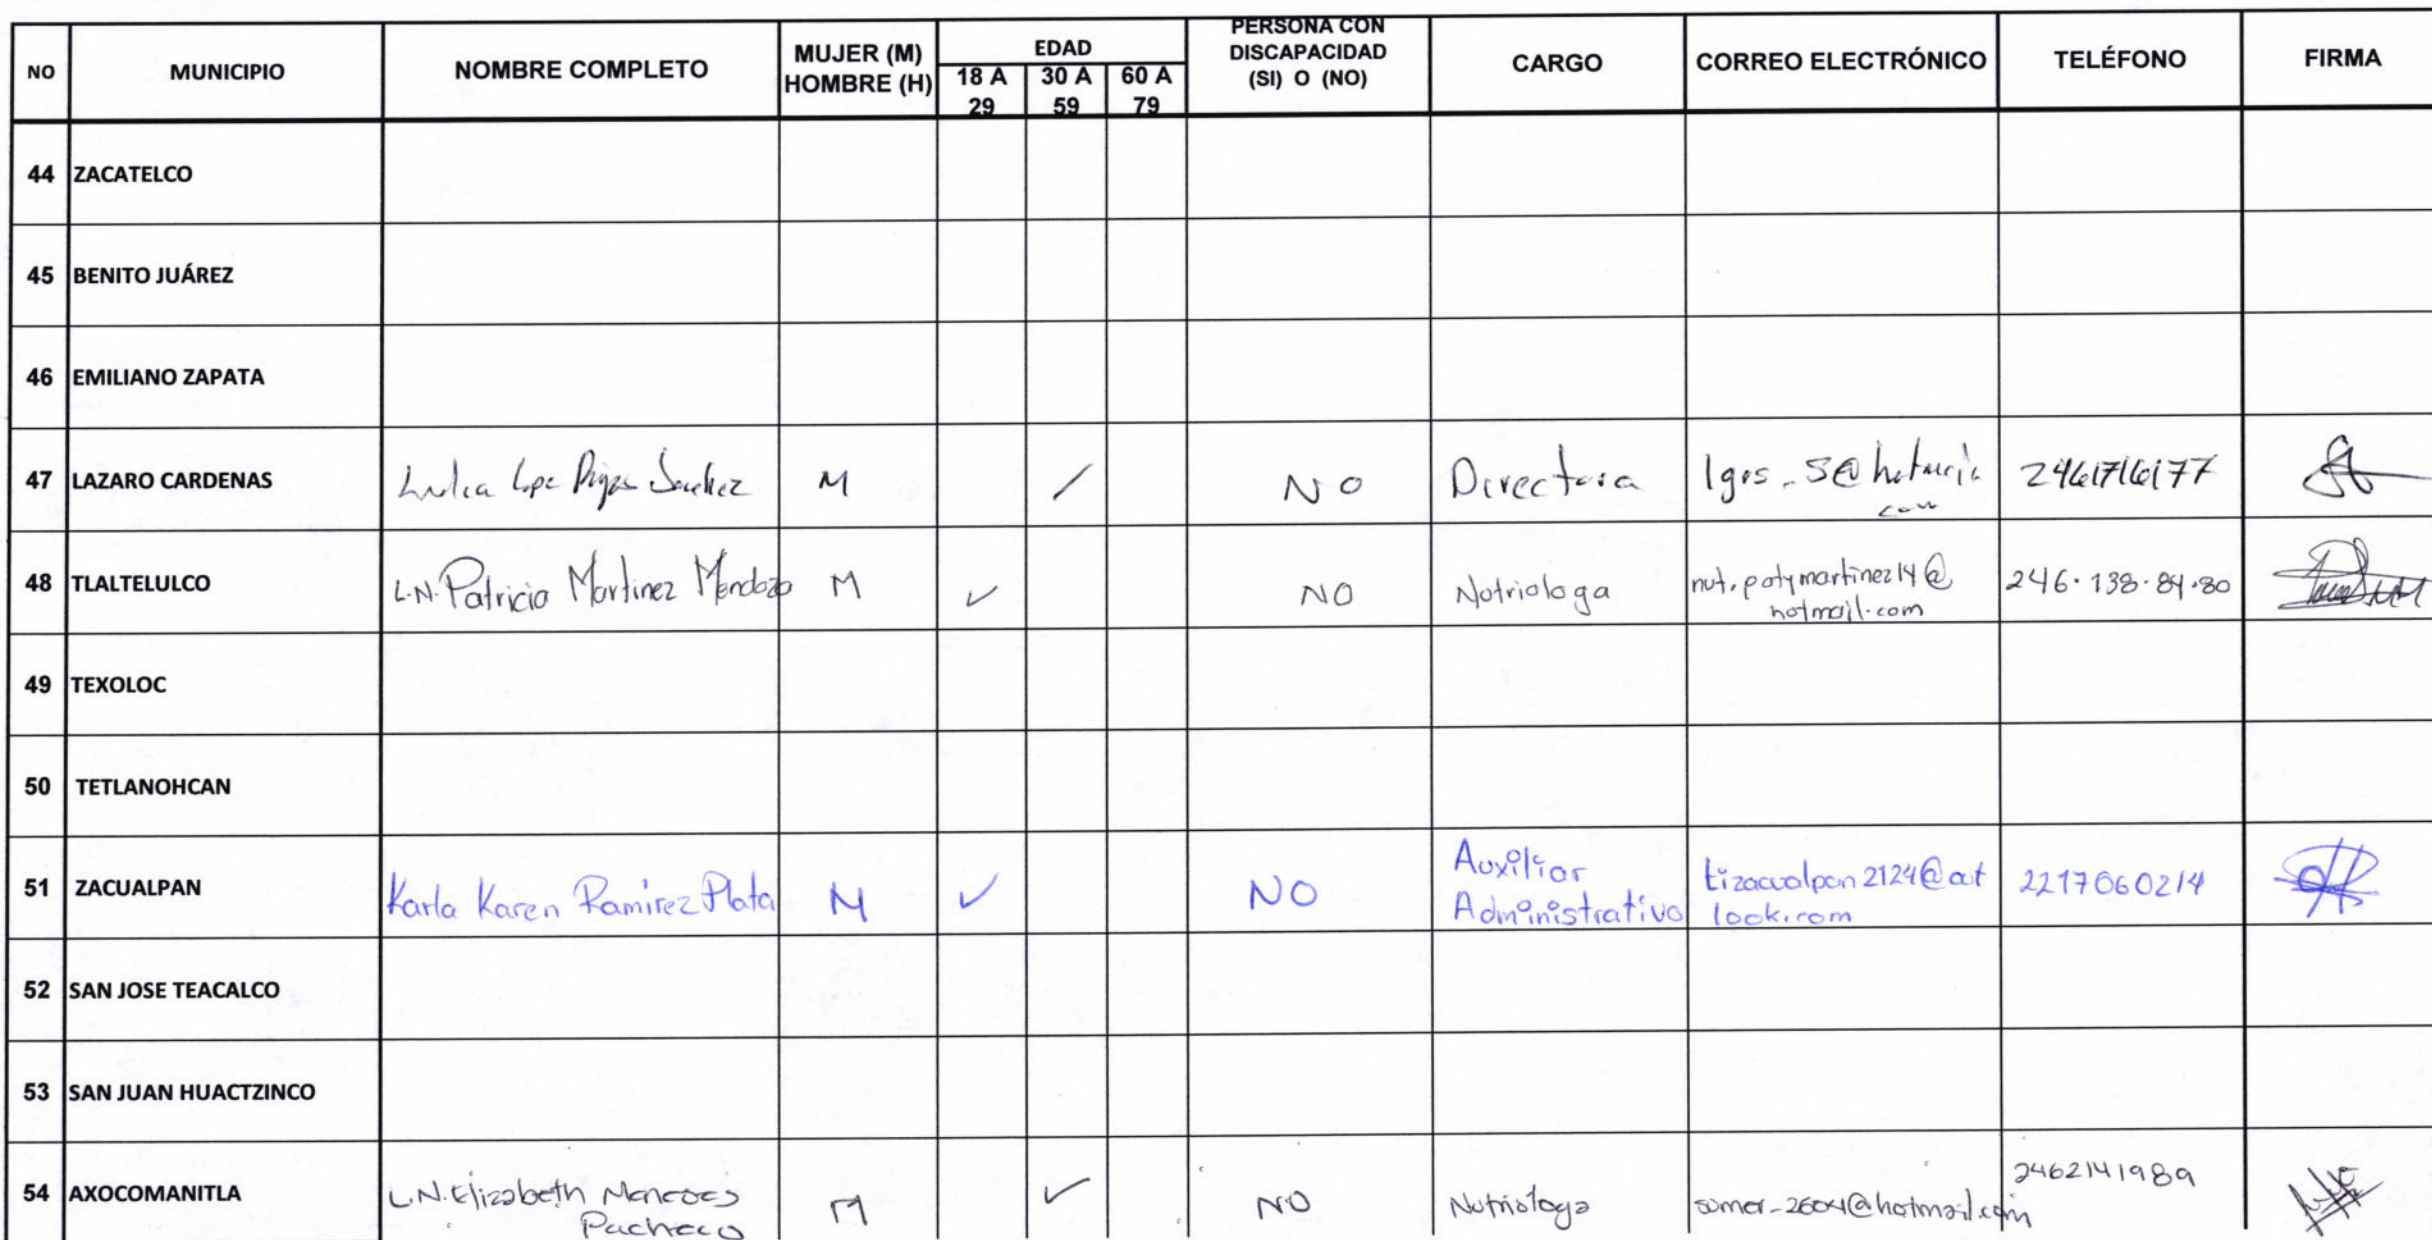 NO MUNICIPIO NOMBRE COMPLETO MUJER (M) HOMBRE (H) EDAD 18 A 29 30 A 59 60 A 79 PERSONA CON DISCAPACIDAD (SI) O (NO) CARGO CORREO ELECTRÓNICO TELÉFONO FIRMA
44 ZACATELCO
45 BENITO JUÁREZ
46 EMILIANO ZAPATA
47 LAZARO CARDENAS Sanchez M / NO Directora 2461716177
48 TLALTELULCO L.N. Patricia Martinez Mendoza M ✓ NO Notriologa nut.patymartinez14@
hotmail.com 246.138.84.80
49 TEXOLOC
50 TETLANOHCAN
51 ZACUALPAN Karla Karen Ramirez Plata M ✓ NO Auxiliar
Administrativo tizacualpan2124@out
look.com 2217060214
52 SAN JOSE TEACALCO
53 SAN JUAN HUACTZINCO
54 AXOCOMANITLA L.N. Elizabeth
Pacheco M ✓ NO Nutriologa sumer-2604@hotmail.com 2462141989